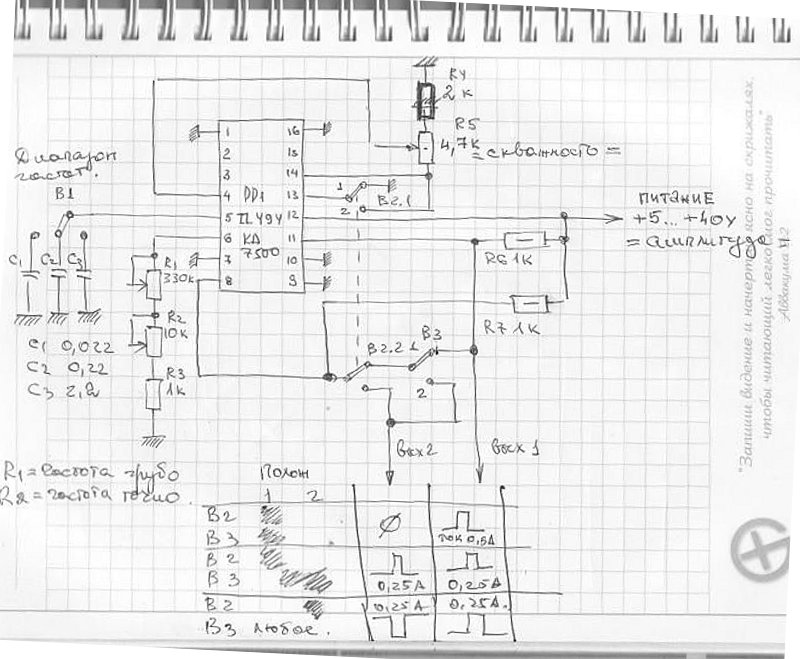 R4
2 к
R5
4,7к = скважность =
Диапазон
частот.
В1
1
2
3
4
5
6
7
8
16
15
14
13
12
11
10
9
DD1
TL494
КА
7500
1
2
В2.1
питание
+5... +40V
= амплитуда
C1
C2
C3
R1
330к
R2
10к
R3
1к
R6 1К
R7 1К
C1 0,022
C2 0,22
C3 2,2
В2.2
1
В3
2
вых 2
вых 1
R1 = частота грубо
R2 = частота точно.
Полож
1 2
В2
В3
ток 0,5А
В2
В3
0,25А
0,25А
В2
0,25А
0,25А.
В3 любое.
"Запиши видение и начертай ясно на скрижалях,
чтобы читающий легко мог прочитать"